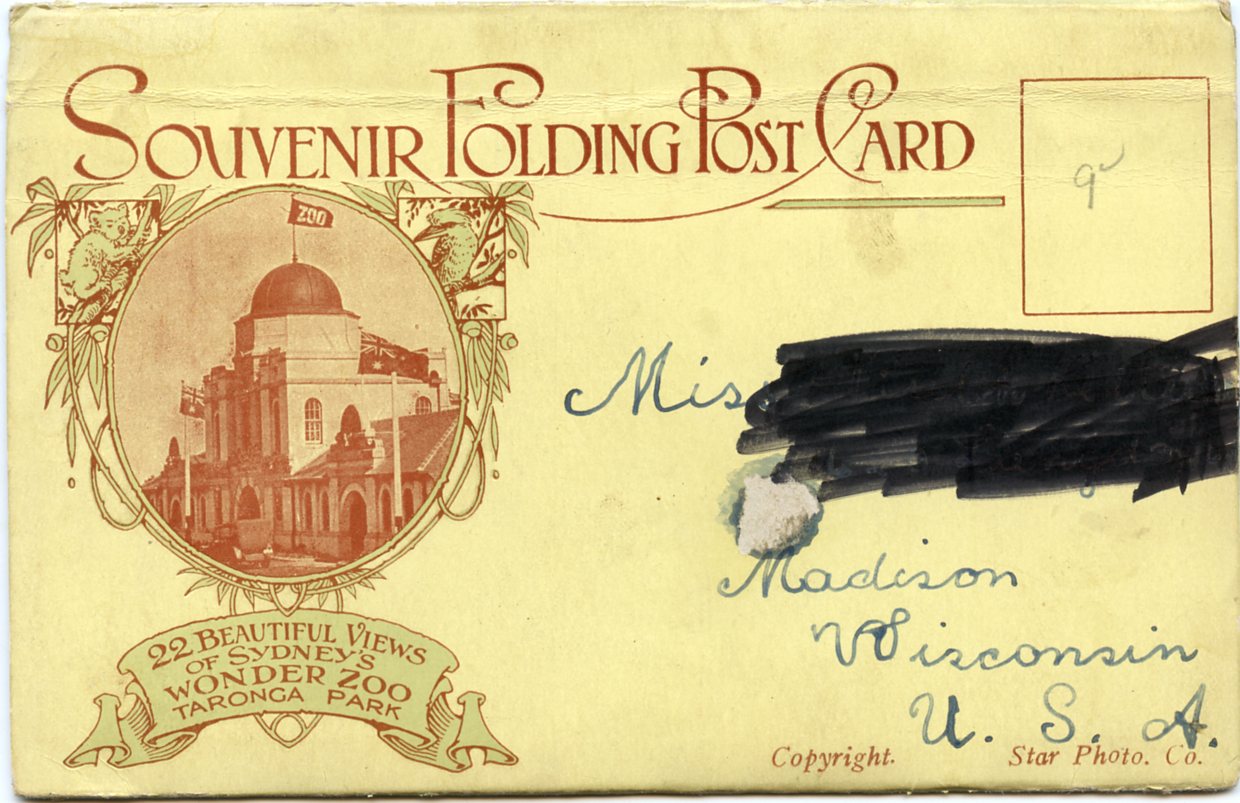 SOUVENIR FOLDING POST CARD
ZOO
9d
Miss
Madison
Wisconsin
U. S. A.
22 BEAUTIFUL VIEWS
OF SYDNEY'S
WONDER ZOO
TARONGA PARK
Copyright. Star Photo. Co.